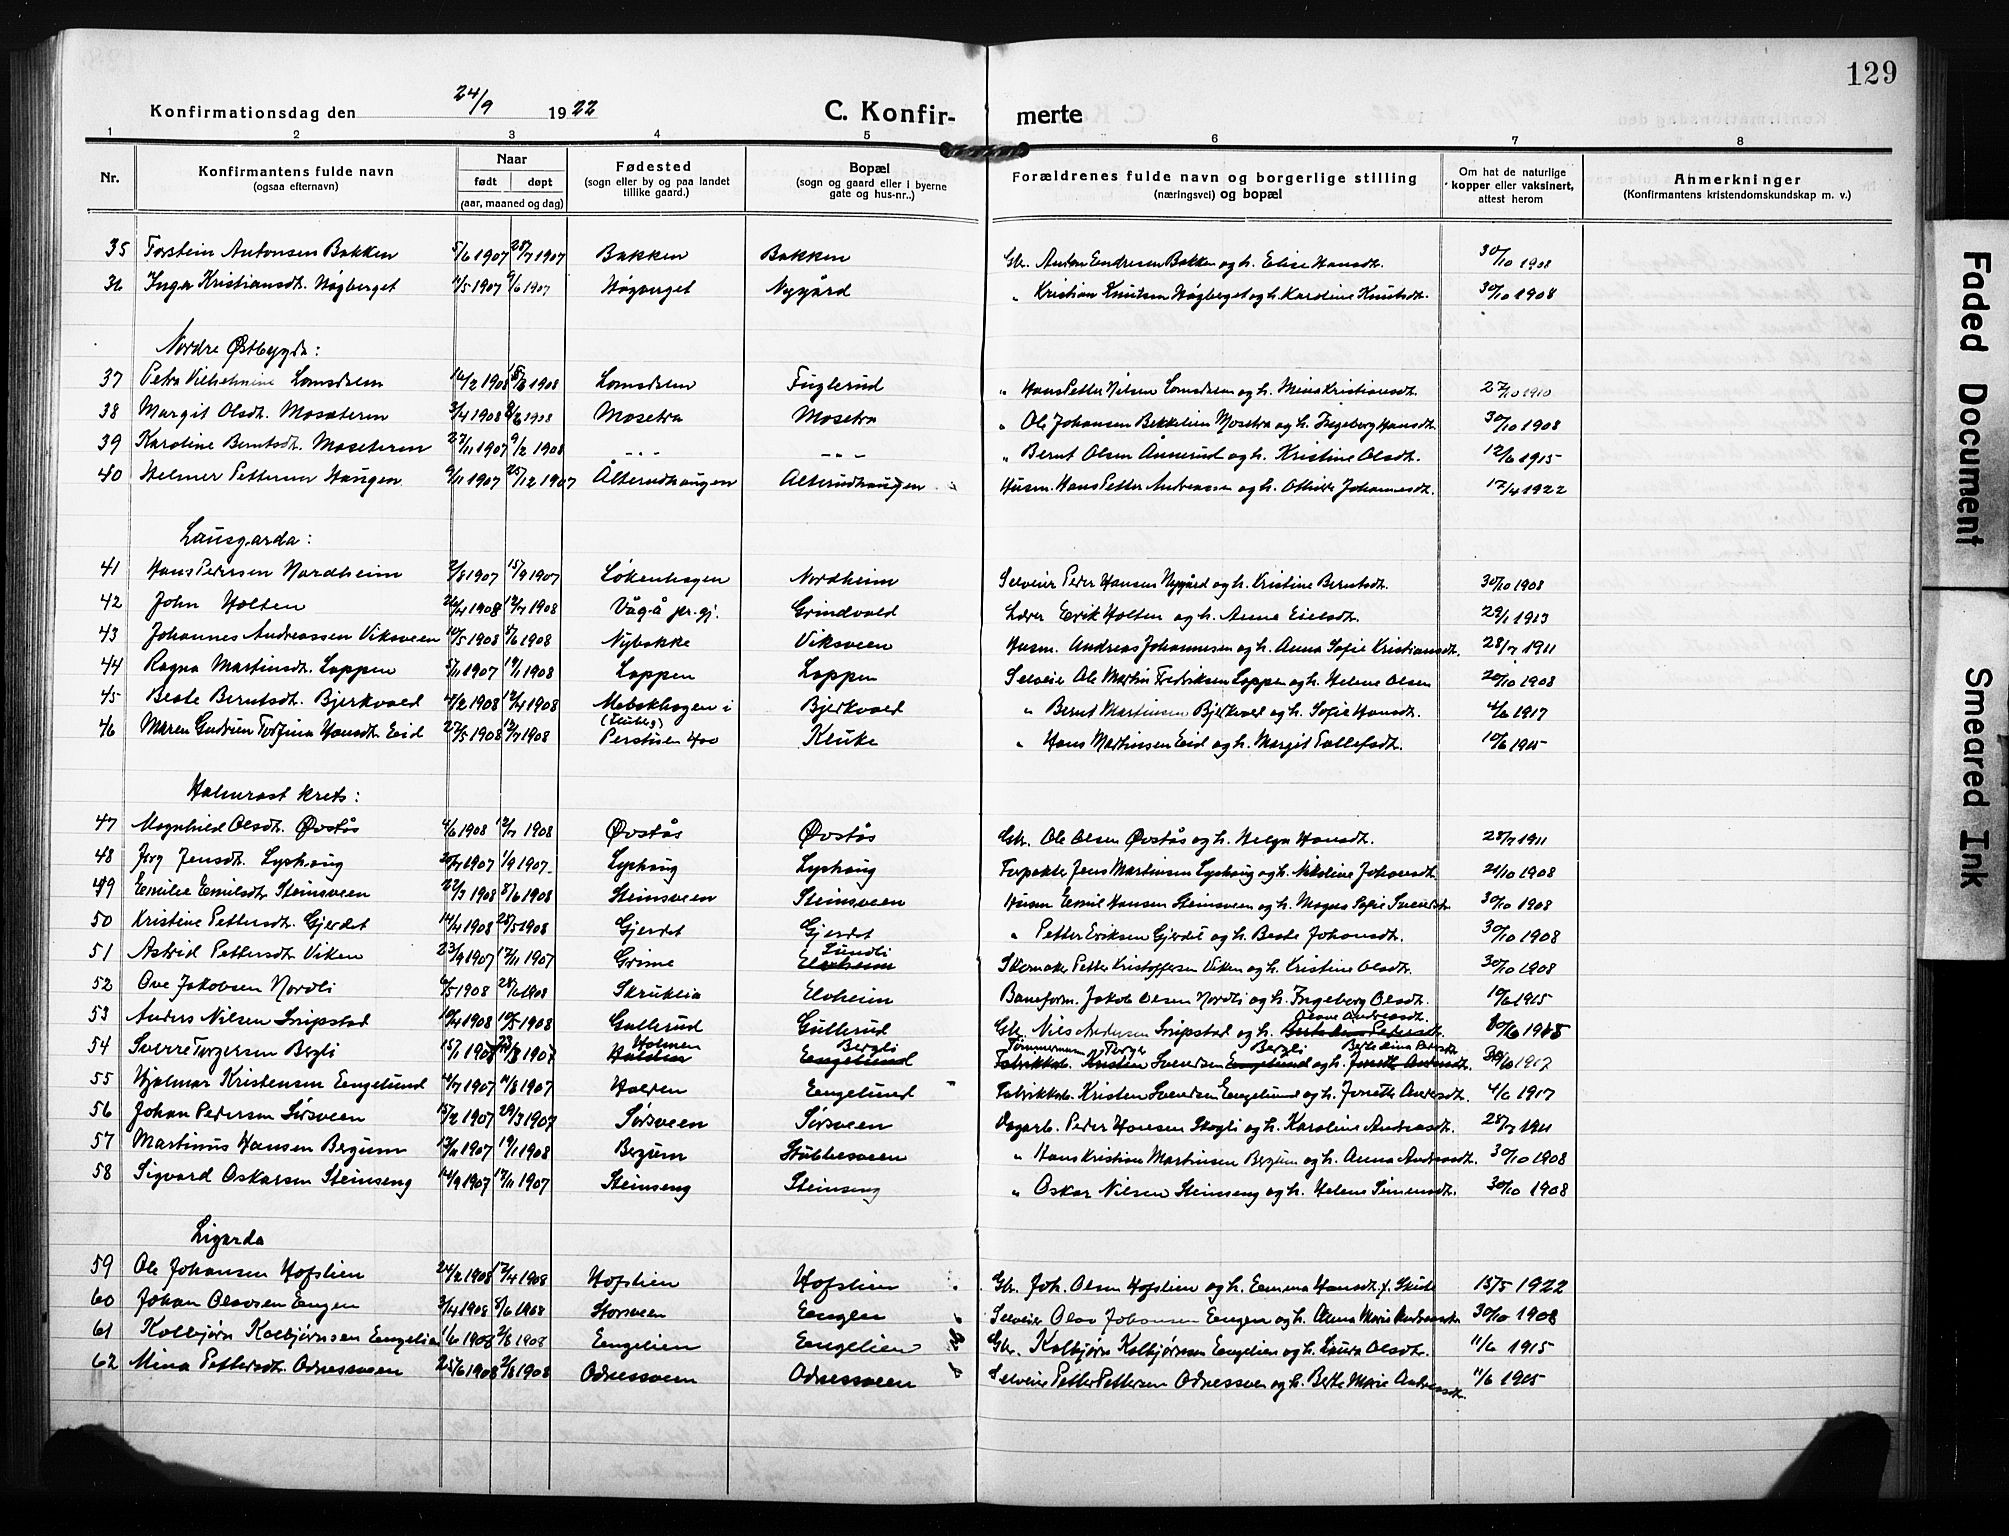 129
Konfirmationsdag den 24/9 1922 C. Konfir- merte
1 2 3 4 5 6 7 8
Nr. Konfirmantens fulde navn (ogsaa efternavn) Naar født døpt (aar, maaned og dag) Fødested (sogn eller by og paa landet tillike gaard.) Bopæl (sogn og gaard eller i byerne gate og hus-nr..) Forældrenes fulde navn og borgerlige stilling (næringsvei) og bopæl Om hat de naturlige kopper eller vaksinert, attest herom Anmerkninger (Konfirmantens kristendomskundskap m. v.)
35 Torstein Antonsen Bakken 5/6 1907 28/7 1907 Bakken Bakken Gbr. Anton Endresen Bakken og h. Elise Hansdt. 30/10 1908
36 Inga Kristiansdt. Høgberget /5 1907 9/6 1907 Nygård " Kristian Knutsen Høgberget og h. Karoline Knutsdt. 30/10 1908
Nordre Østbygda:
37 Petra Vilhelmine Lomsdren 16/2 1908 1908 Lomsdren Fuglerud " Hans Petter Nilsen Lomsdren og h. Mina Kristiansdt. 27/10 1910
38 Margit Olsdt. Moseteren 3/4 1908 8/6 1908 Mosetra Mosetra " Ole Johansen Bekkelien Mosetra og h. Ingeborg Hansdt. 30/10 1908
39 Karoline Berntsdt. Moseteren 27/11 1907 9/2 1908 - - - - - - " Bernt Olsen Ånnerud og h. Kristine Olsdt. 12/6 1915
40 Helmer Pettersen Haugen 9/11 1907 25/12 1907 Ålterudhaugen Alterudhaugen Husm. Hans Petter Andreassen og h. Othilde Johannesdt. 17/4 1922
Lausgarda:
41 Hans Pedersen Nordheim 2/8 1907 15/9 1907 Løkenhagen Nordheim Selveier Peder Hansen Nygård og h. Kristine Berntsdt. 30/10 1908
42 John Holten 26/4 1908 12/7 1908 Vågå pr.gj. Grindvold Lærer Erik Holten og h. Anne Eielsdt. 29/1 1913
43 Johannes Andreassen Viksveen 10/5 1908 8/6 1908 Nybakke Viksveen Husm. Andreas Johannesen og h. Anna Sofie Kristiansdt. 28/7 1911
44 Ragna Martinsdt. Loppen 5/11 1907 19/1 1908 Loppen Loppen Selveier Ole Martin Fredriksen Loppen og h. Helene Olsen 20/10 1908
45 Beate Berntsdt. Bjerkvold 4/2 1908 12/4 1908 Mobakhagen i Bjerkvold " Bernt Martinsen Bjerkvold og h. Sofie Hansdt. 4/6 1917
46 Maren Gudrun Torfina Hansdt. Eid 27/5 1908 12/7 1908 Kluke " Hans Martinsen Eid og h. Margit Tollefsdt. 10/6 1915
Holmrast krets:
47 Magnhild Olsdt. Øvstås 4/6 1908 12/7 1908 Øvstås Øvstås Gbr. Ole Olsen Øvstås og h. Helga Hansdt. 28/7 1911
48 Jensdt. Lyshaug 1907 1/9 1907 Lyshaug Lyshaug Forpakter Jens Martinsen Lyshaug og h. Nikoline Johansdt. 21/10 1908
49 Emilie Emilsdt. Steinsveen 22/3 1908 8/6 1908 Steinsveen Steinsveen Husm Emil Hansen Steinsveen og h. Sofie Svendsdt. 30/10 1908
50 Kristine Pettersdt. Gjerdet 14/4 1908 28/5 1908 Gjerdet Gjerdet " Petter Eriksen Gjerdet og h. Beate Johansdt. 30/10 1908
51 Astrid Pettersdt. Viken 23/9 1907 17/11 1907 Grime Lundli Elvheim Skomaker Petter Kristoffersen Viken og h. Kristine Olsdt. 30/10 1908
52 Ove Jakobsen Nordli 6/5 1908 28/6 1908 Skruklia Elvheim Baneform. Jakob Olsen Nordli og h. Ingeborg Olsdt. 10/6 1915
53 Anders Nilsen Snipstad 10/4 1908 10/5 1908 Gullerud Gullerud Gbr. Nils Andersen Snipstad og h. Andreasdt. Pedersdt. 1915
54 Sverre Torgersen Bergli 15/7 1907 1907 Holmen Bergli Engelund Tømmermann Torger Bergli Fabrikkarb. Kristen Svendsen Engelund og h. Andersdt. 1917
55 Hjalmar Kristensen Engelund 4/7 1907 11/8 1907 Holden Engelund Fabrikkarb. Kristen Svendsen Engelund og h. Jonette Andersdt. 4/6 1917
56 Johan Pedersen Sørsveen 15/2 1907 29/3 1907 Sørsveen Sørsveen Dagarb. Peder Hansen Skogli og h. Karoline Andreasdt. 28/7 1911
57 Martinus Hansen Bergum 1907 19/1 1908 Bergum Stubbesveen " Hans Kristian Martinsen Bergum og h. Anna Andreasdt. 30/10 1908
58 Sigvard Oskarsen Steinseng 14/9 1907 17/11 1907 Steinseng Steinseng " Oskar Nilsen Steinseng og h. Helene Simensdt. 30/10 1908
Ligarda
59 Ole Johansen Hofslien 24/2 1908 12/4 1908 Hofslien Hofslien Gbr. Joh. Olsen Hofslien og h. Emma Hansdt. f. Skute 15/5 1922
60 Johan Olavsen Engen 3/4 1908 8/6 1908 Storsveen Engen Selveier Olav Johansen Engen og h. Anna Marie Andreasdt. 30/10 1908
61 Kolbjørn Kolbjørnsen Engelien 1/6 1908 2/8 1908 Engelien Engelien Gbr. Kolbjørn Kolbjørnsen Engelien og h. Laura Olsdt. 11/6 1915
62 Mina Pettersdt. Odnessveen 25/6 1908 2/8 1908 Odnessveen Odnessveen Selveier Petter Pettersen Odnessveen og h. Berte Marie Andreasdt. 11/6 1915
Faded Document
Smeared Ink